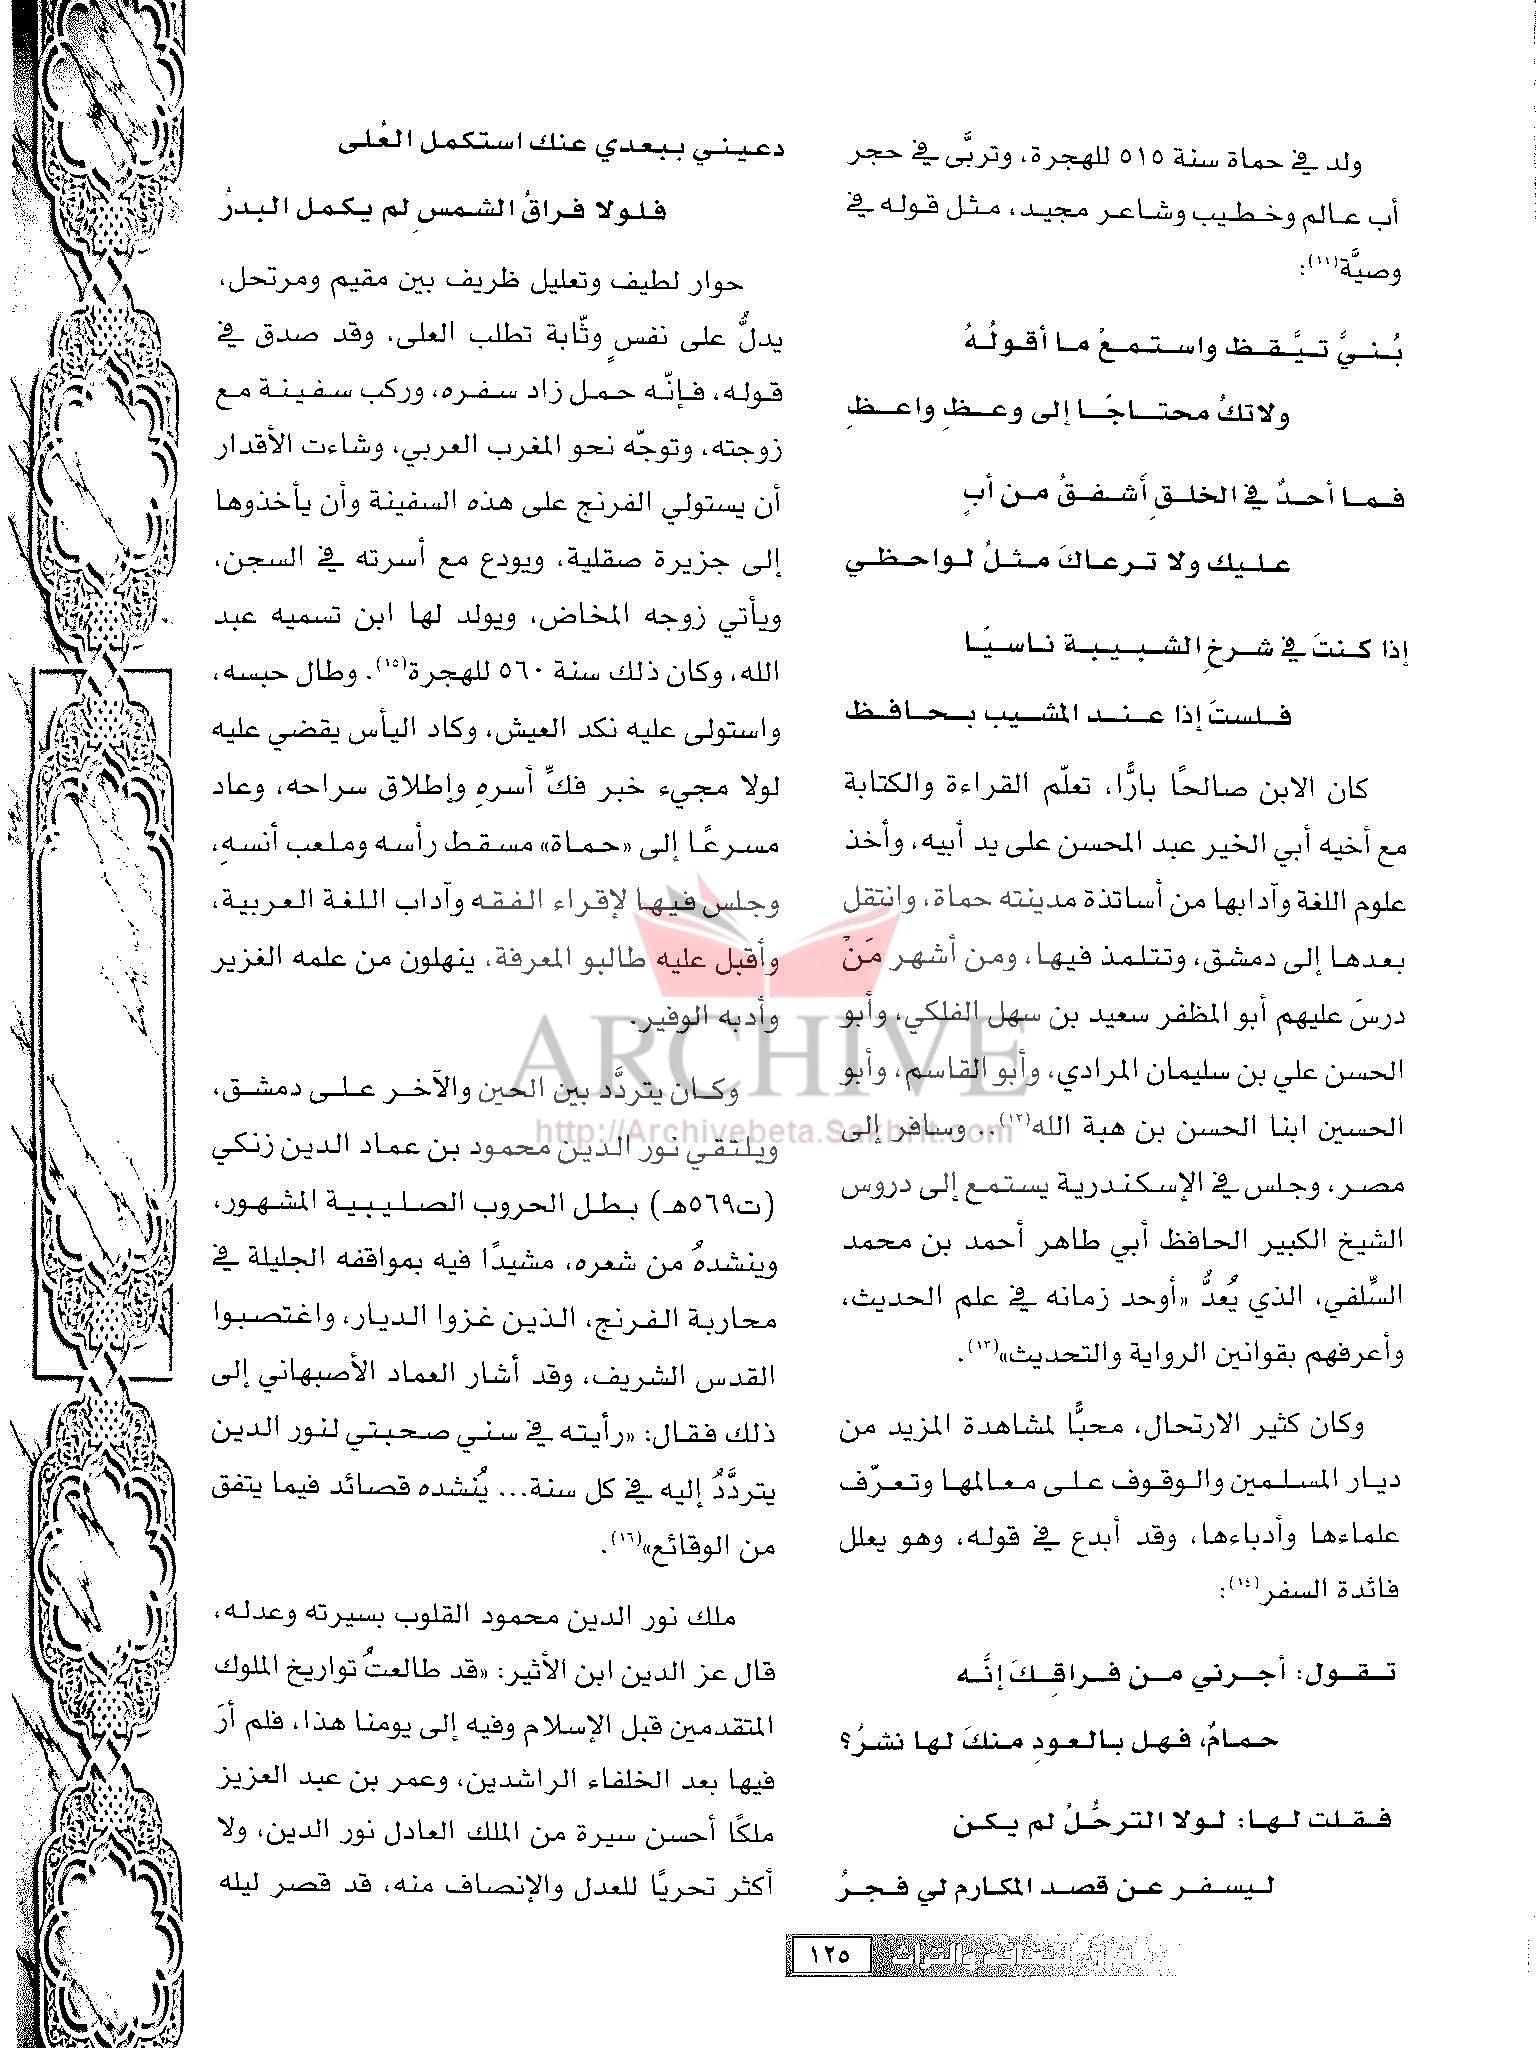 ولد في حماة سنة ٥١٥ للهجرة، وتربَّى في حجر
أب عالم وخطيب وشاعر مجيد، مثل قوله في
وصيَّة(١١):
بُنيَّ تيَّقظ واستمعْ ما أقولُهُ
ولاتكُ محتاجًا إلى وعظِ واعظِ
فما أحدٌ في الخلقِ أشفقُ من أبٍ
عليك ولا ترعاكَ مثلُ لواحظي
إذا كنتَ في شرخِ الشبيبة ناسيًا
فلستَ إذا عند المشيب بحافظ
كان الابن صالحًا بارًّا، تعلّم القراءة والكتابة
مع أخيه أبي الخير عبد المحسن على يد أبيه، وأخذ
علوم اللغة وآدابها من أساتذة مدينته حماة، وانتقل
بعدها إلى دمشق، وتتلمذ فيها، ومن أشهر مَنْ
درسَ عليهم أبو المظفر سعيد بن سهل الفلكي، وأبو
الحسن علي بن سليمان المرادي، وأبو القاسم، وأبو
الحسين ابنا الحسن بن هبة الله(١٢).. وسافر إلى
مصر، وجلس في الإسكندرية يستمع إلى دروس
الشيخ الكبير الحافظ أبي طاهر أحمد بن محمد
السِّلفي، الذي يُعدُّ «أوحد زمانه في علم الحديث،
وأعرفهم بقوانين الرواية والتحديث»(١٣).
وكان كثير الارتحال، محبًّا لمشاهدة المزيد من
ديار المسلمين والوقوف على معالمها وتعرّف
علماءها وأدباءها، وقد أبدع في قوله، وهو يعلل
فائدة السفر(١٤):
تقول: أجرني من فراقِكَ إنَّه
حمامٌ، فهل بالعودِ منكَ لها نشرُ؟
فقلت لها: لولا الترحُّلُ لم يكن
ليسفر عن قصد المكارم لي فجرُ
دعيني ببعدي عنك استكمل العُلى
فلولا فراقُ الشمسِ لم يكمل البدرُ
حوار لطيف وتعليل ظريف بين مقيم ومرتحل،
يدلُّ على نفسٍ وثّابة تطلب العلى، وقد صدق في
قوله، فإنّه حمل زاد سفره، وركب سفينة مع
زوجته، وتوجّه نحو المغرب العربي، وشاءت الأقدار
أن يستولي الفرنج على هذه السفينة وأن يأخذوها
إلى جزيرة صقلية، ويودع مع أسرته في السجن،
ويأتي زوجه المخاض، ويولد لها ابن تسميه عبد
الله، وكان ذلك سنة ٥٦٠ للهجرة(١٥). وطال حبسه،
واستولى عليه نكد العيش، وكاد اليأس يقضي عليه
لولا مجيء خبر فكِّ أسرهِ وإطلاق سراحه، وعاد
مسرعًا إلى «حماة» مسقط رأسه وملعب أنسهِ،
وجلس فيها لإقراء الفقه وآداب اللغة العربية،
وأقبل عليه طالبو المعرفة، ينهلون من علمه الغزير
وأدبه الوفير.
وكان يتردَّد بين الحين والآخر على دمشق،
ويلتقي نور الدين محمود بن عماد الدين زنكي
(ت٥٦٩هـ) بطل الحروب الصليبية المشهور،
وينشدهُ من شعره، مشيدًا فيه بمواقفه الجليلة في
محاربة الفرنج، الذين غزوا الديار، واغتصبوا
القدس الشريف، وقد أشار العماد الأصبهاني إلى
ذلك فقال: «رأيته في سني صحبتي لنور الدين
يتردَّدُ إليه في كل سنة... يُنشده قصائد فيما يتفق
من الوقائع»(١٦).
ملك نور الدين محمود القلوب بسيرته وعدله،
قال عز الدين ابن الأثير: «قد طالعتُ تواريخ الملوك
المتقدمين قبل الإسلام وفيه إلى يومنا هذا، فلم أرَ
فيها بعد الخلفاء الراشدين، وعمر بن عبد العزيز
ملكًا أحسن سيرة من الملك العادل نور الدين، ولا
أكثر تحريًا للعدل والإنصاف منه، قد قصر ليله
ARCHIVE
http://Archivebeta.Sakhrit.com
١٢٥